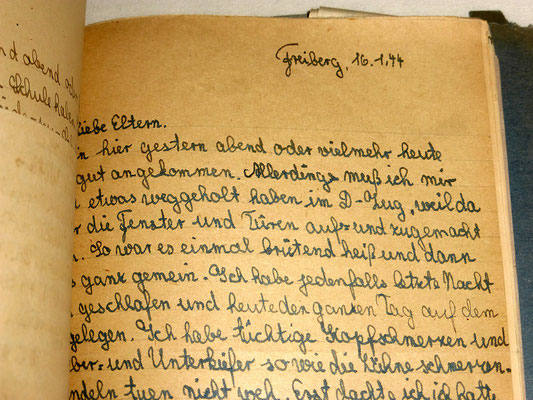 nd abend od
Schule haben
Freiberg, 16.1.44
Liebe Eltern.
in hier gestern abend oder vielmehr heute
gut angekommen. Allerdings muß ich mir
etwas weggeholt haben im D-Zug, weil da
die Fenster und Türen auf- und zugemacht
So war es einmal brütend heiß und dann
ganz gemein. Ich habe jedenfalls letzte Nacht
geschlafen und heute den ganzen Tag auf dem
gelegen. Ich habe tüchtige Kopfschmerzen und
ber- und Unterkiefer sowie die Zähne schmerzen.
ndeln tuen nicht weh. Erst dachte ich ich hätte